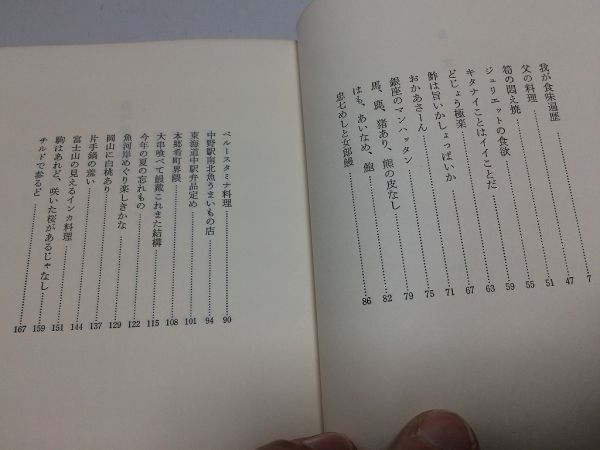 我が食味遍歴……7
父の料理……47
筍の悶え焼……51
ジュリエットの食欲……55
キタナイことはイイことだ……59
どじょう極楽……63
鮓は旨いかしょっぱいか……67
おかあさーん……71
銀座のマンハッタン……75
馬、鹿、猪あり、熊の皮なし……79
はも、あいなめ、鮑……82
忠七めしと女郎鰻……86
ペルースタミナ料理……90
中野駅南北魚うまいもの店……94
東海道中駅弁品定め……101
本郷肴町界隈……108
大串喰べて饅戴これまた結構……115
今年の夏の忘れもの……122
魚河岸めぐり楽しきかな……129
岡山に白桃あり……137
片手鍋の憂い……144
富士山の見えるインカ料理……151
駒はあれど、咲いた桜があるじゃなし……159
チルドで参るど……167